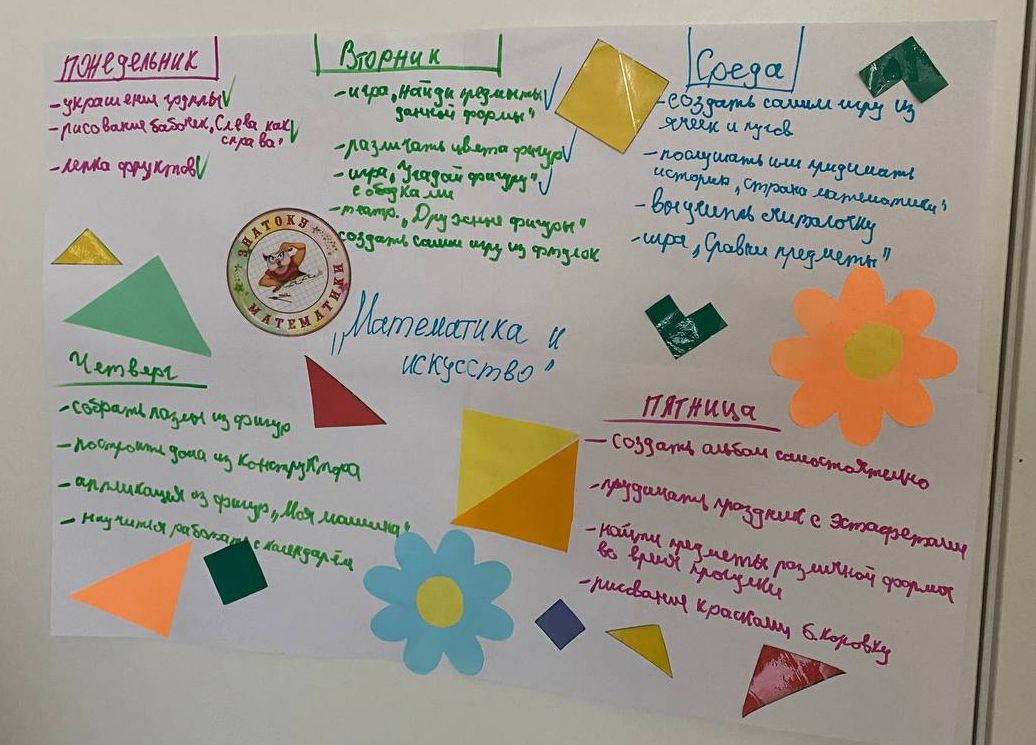 ПОНЕДЕЛЬНИК
- украшения группы
- рисование бабочек „Слева как
справа"
- лепка фруктов
Вторник
- игра „Найди предметы
данной формы"
- различать цвета фигур
- игра „Угадай фигуру"
с ободками
- театр. „Дружные фигуры"
создать самим игру из втулок
Среда
- создать самим игру из
ячеек и пугов
- послушать или придумать
историю „страна математики"
- выучить считалочку
- игра „Сравни предметы"
ЗНАТОКУ МАТЕМАТИКИ
„Математика и
искусство"
Четверг
- собрать пазлы из фигур
- построить дома из конструктора
- аппликация из фигур „Моя машина"
- научится работать с календарём
ПЯТНИЦА
- создать альбом самостоятельно
- придумать праздник с эстафетами
- найти предметы различной формы
во время прогулки
- рисвание красками б. коровку